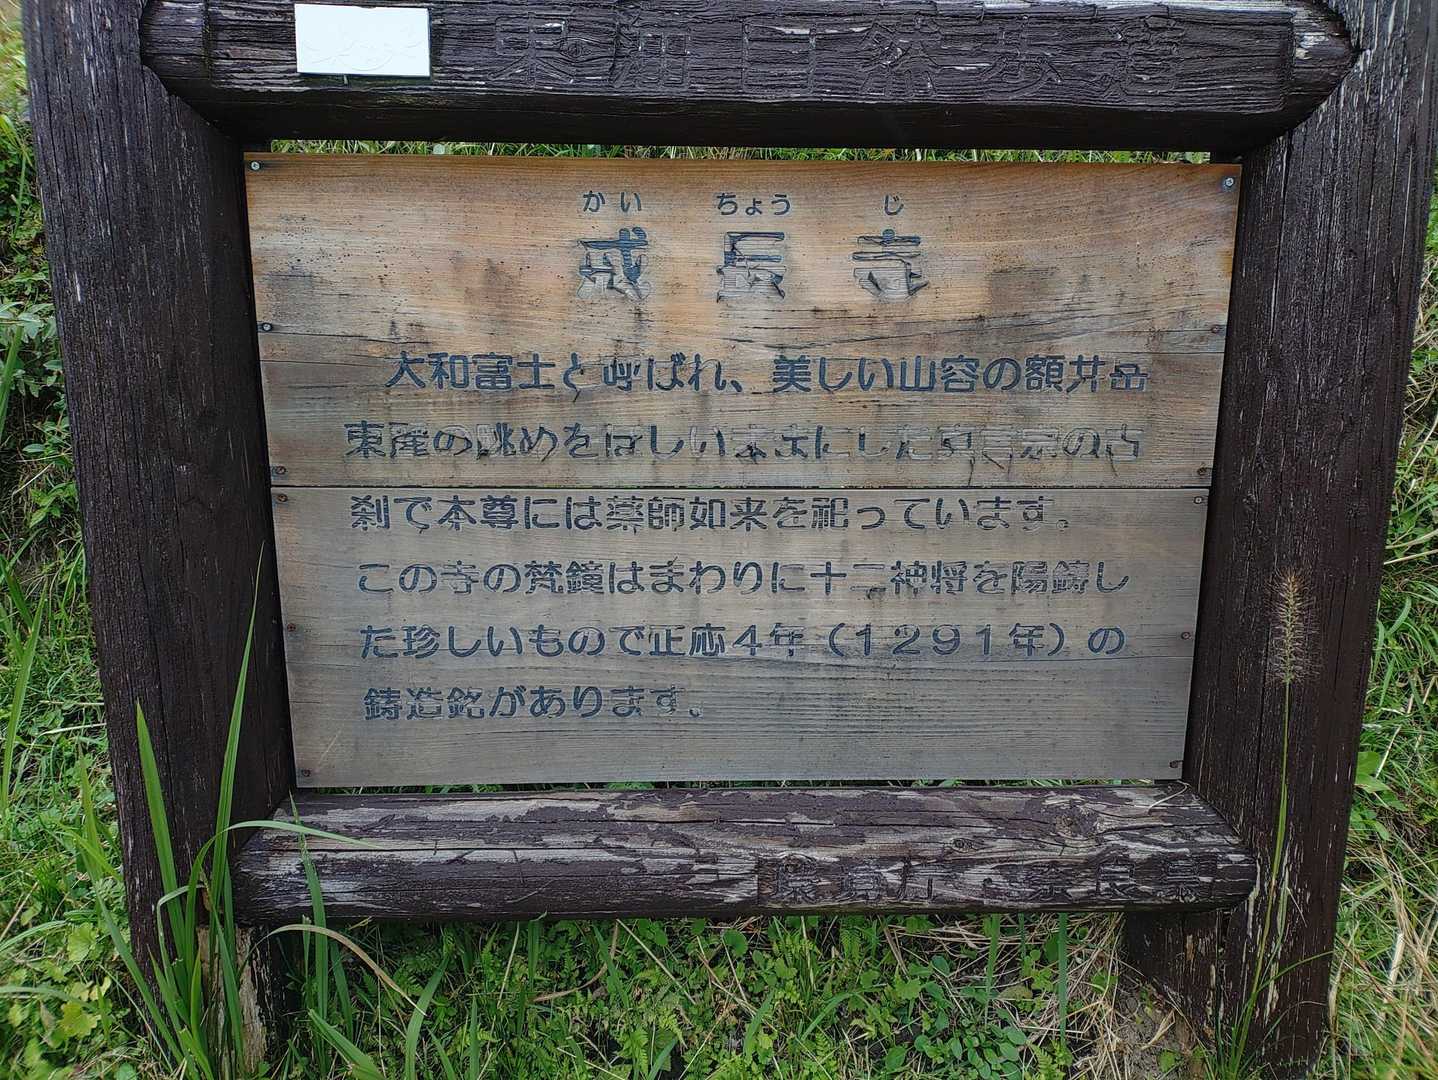 東海自然歩道
かい ちょう じ
戒長寺
大和富士と呼ばれ、美しい山容の額井岳
東麓の眺めをほしいままにした真言宗の古
刹で本尊には薬師如来を祀っています。
この寺の梵鐘はまわりに十二神将を陽鋳し
た珍しいもので正応4年（1291年）の
鋳造銘があります。
環境庁・奈良県